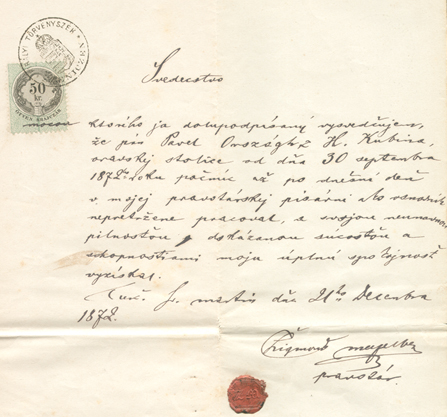 TÖRVÉNYSZÉK
50
kr.
Svedectvo
mocou ktorého ja dolupodpísaný vysvedčujem,
že pán Pavel Országh z H. Kubína,
oravskej stolice od dňa 30 septembra
1872 roku počnúc až po dnešní deň
v mojej pravotárskej pisárni ako
nepretržene pracoval, a svojou neunavnou
pilnosťou, dokázanou súcosťou a
schopnosťami moju úplnú spokojnosť
vyzískal.
Turč. Sv. Martin dňa 21ho Decembra
1872.
Žigmond
pravotár.